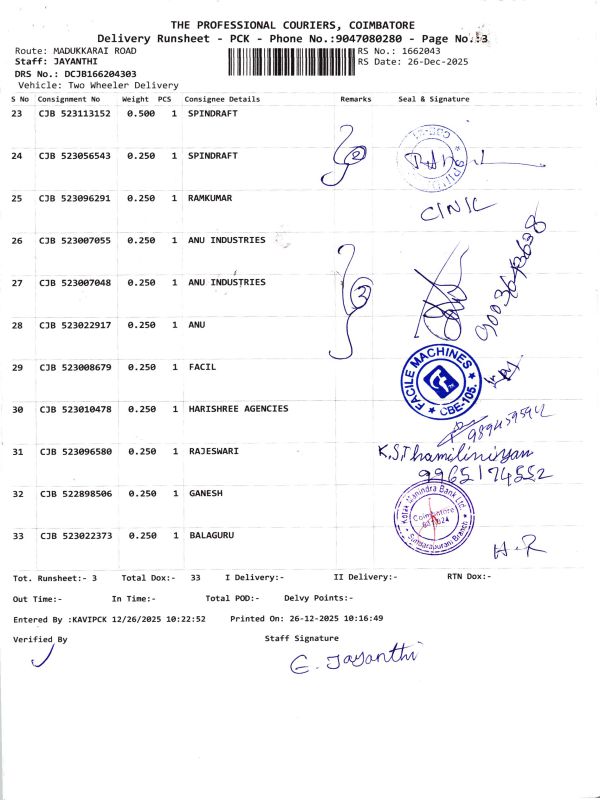 THE PROFESSIONAL COURIERS, COIMBATORE
Delivery Runsheet - PCK - Phone No.:9047080280 - Page No.:3
Route: MADUKKARAI ROAD RS No.: 1662043
Staff: JAYANTHI RS Date: 26-Dec-2025
DRS No.: DCJB166204303
Vehicle: Two Wheeler Delivery
S No Consignment No Weight PCS Consignee Details Remarks Seal & Signature
23 CJB 523113152 0.500 1 SPINDRAFT
24 CJB 523056543 0.250 1 SPINDRAFT 2
25 CJB 523096291 0.250 1 RAMKUMAR CINIL
26 CJB 523007055 0.250 1 ANU INDUSTRIES
27 CJB 523007048 0.250 1 ANU INDUSTRIES 3
28 CJB 523022917 0.250 1 ANU
29 CJB 523008679 0.250 1 FACIL FACILE MACHINES * CBE-105. *
30 CJB 523010478 0.250 1 HARISHREE AGENCIES
31 CJB 523096580 0.250 1 RAJESWARI K.S.Thamiliniyan
9965174552
32 CJB 522898506 0.250 1 GANESH Kotak Mahindra Bank Ltd. Coimbatore
33 CJB 523022373 0.250 1 BALAGURU H.R
Tot. Runsheet:- 3 Total Dox:- 33 I Delivery:- II Delivery:- RTN Dox:-
Out Time:- In Time:- Total POD:- Delvy Points:-
Entered By :KAVIPCK 12/26/2025 10:22:52 Printed On: 26-12-2025 10:16:49
Verified By Staff Signature
G. Jayanthi